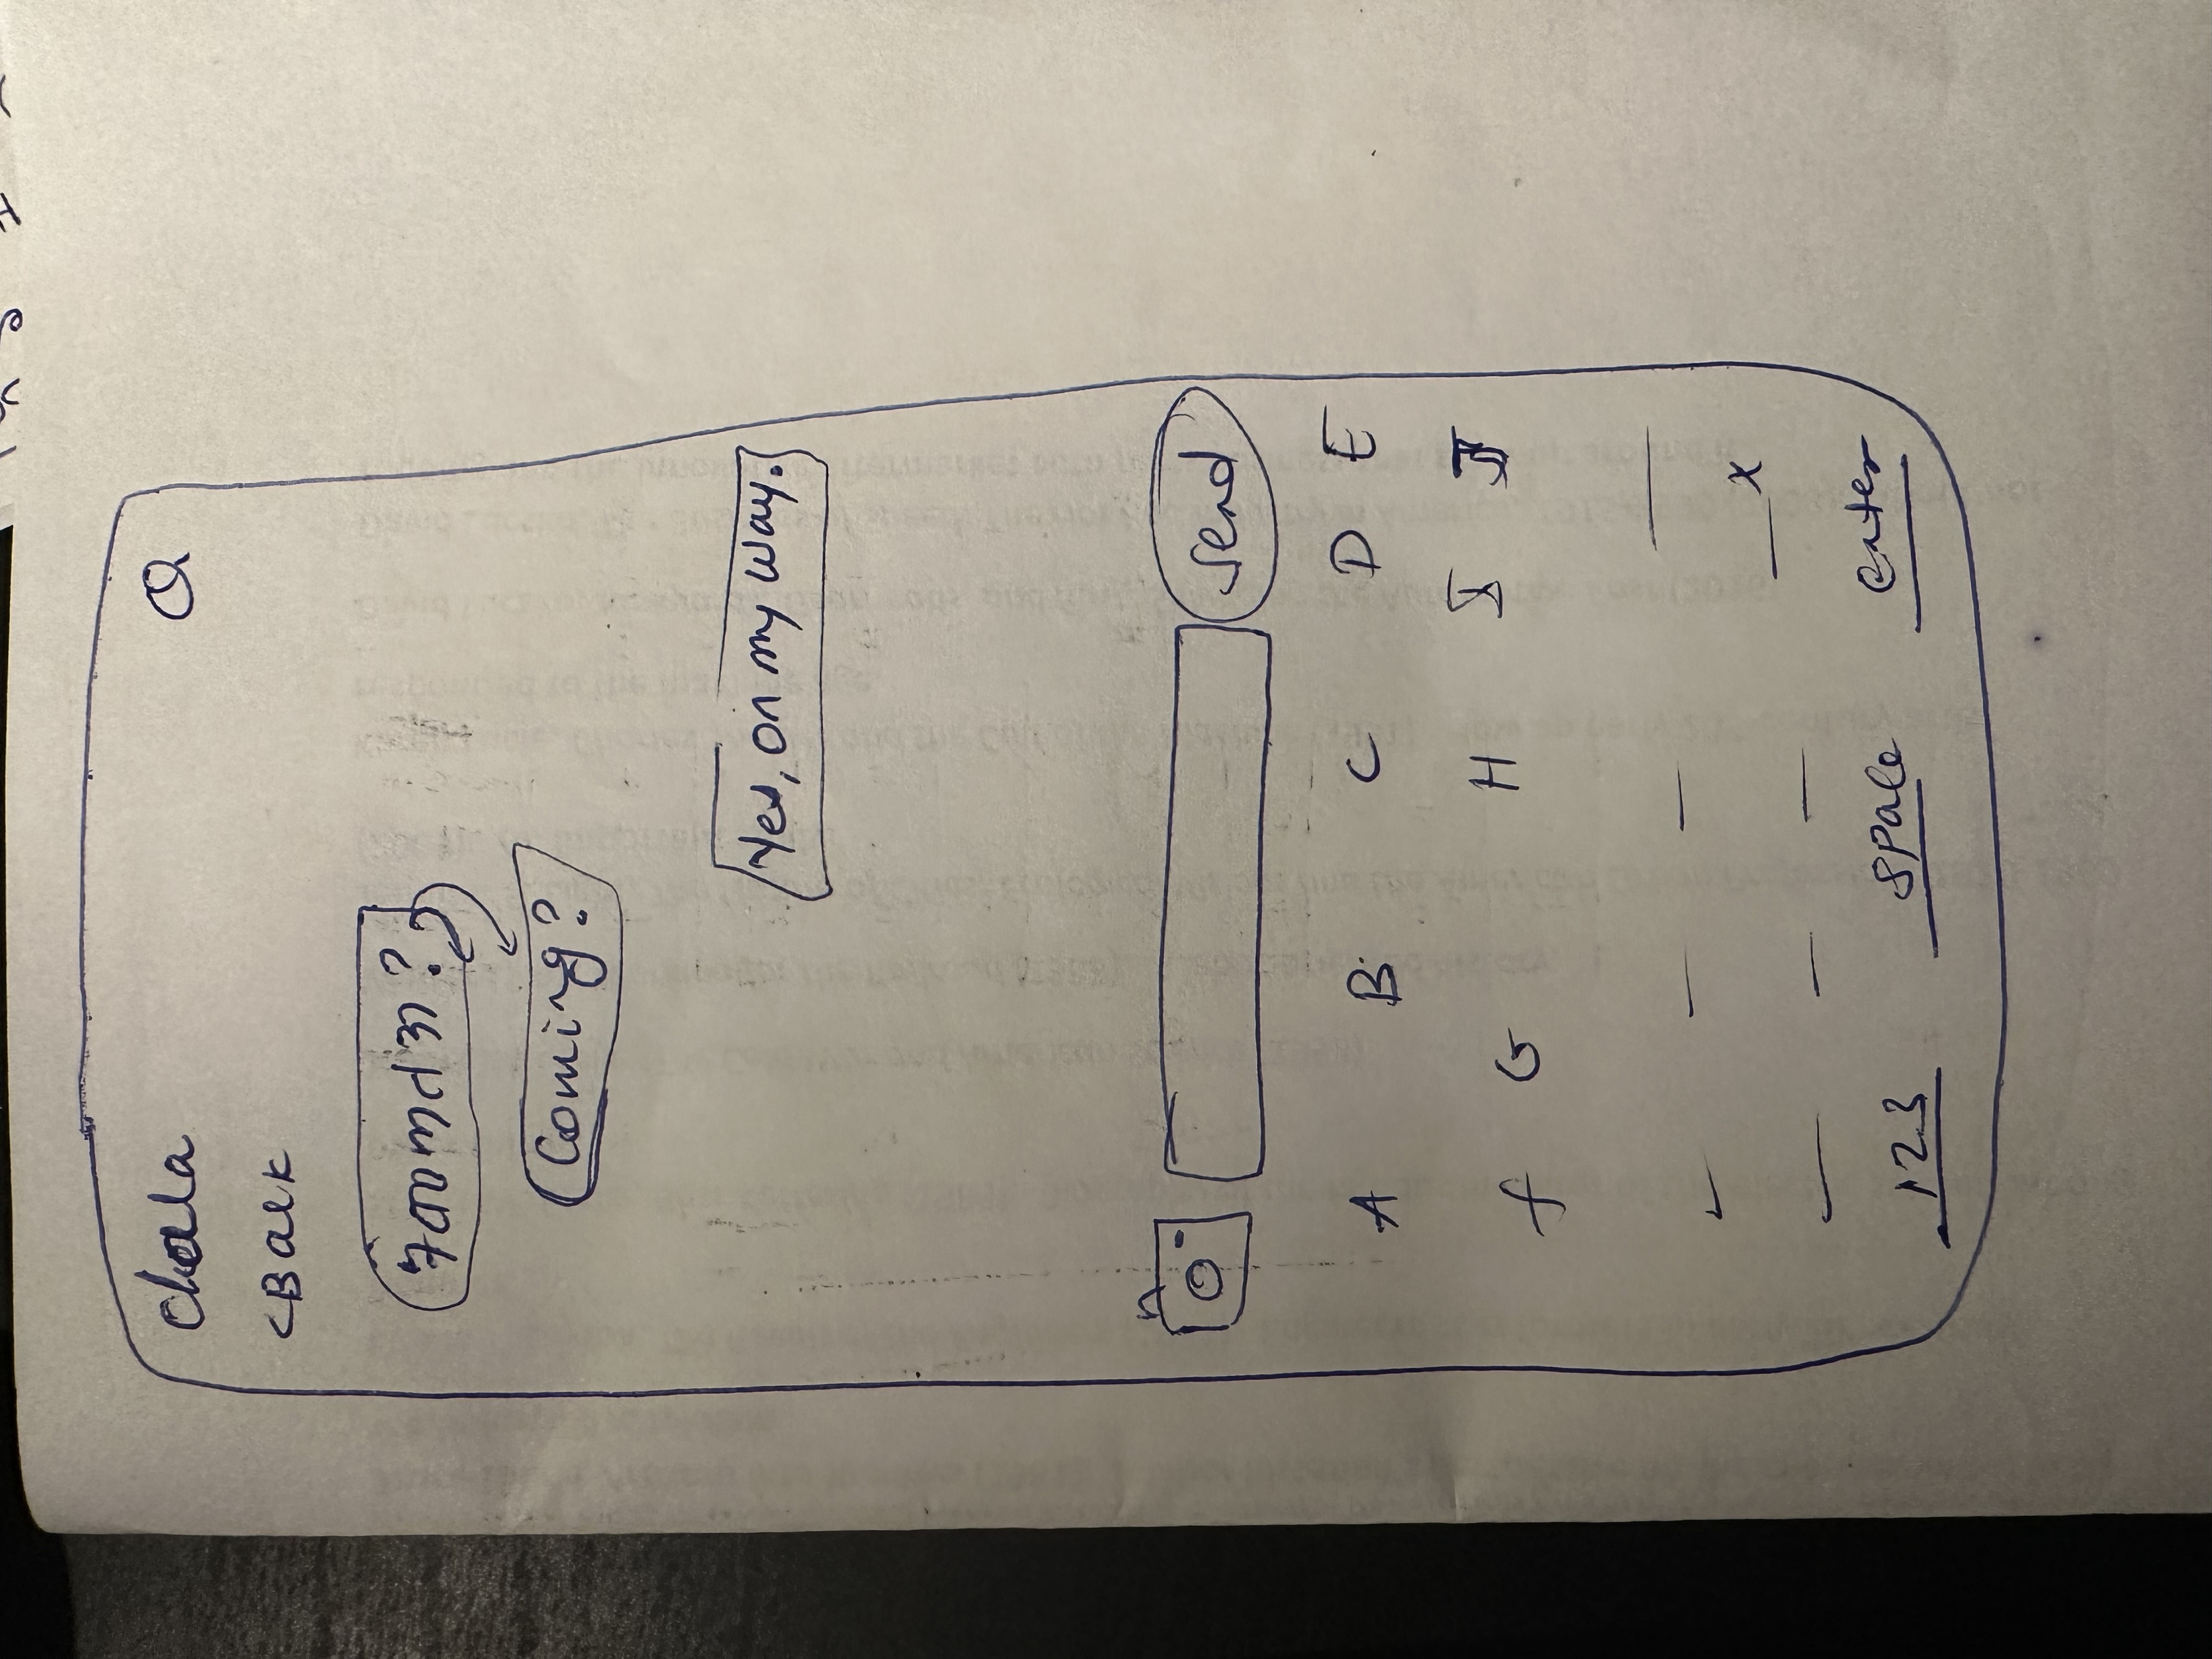 chala
<Back
Coming?
Yes, on my way.
Send
A B C D E
f G H I J
x
123 space enter